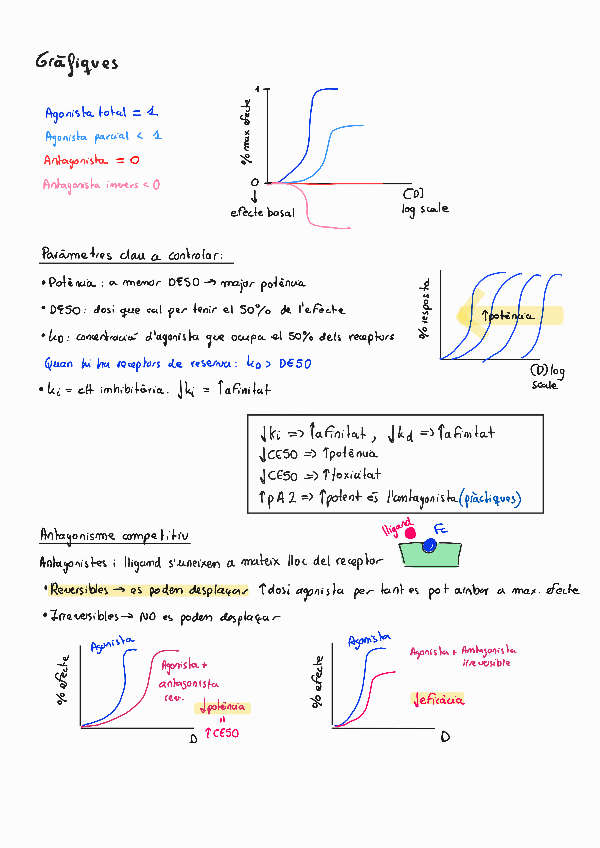 Gràfiques
Agonista total = 1
Agonista parcial < 1
Antagonista = 0
Antagonista invers < 0
% max efecte
1
0
efecte basal
[D]
log scale
Paràmetres clau a controlar:
• Potència: a menor DE50 → major potència
• DE50: dosi que cal per tenir el 50% de l'efecte
• kD: concentració d'agonista que ocupa el 50% dels receptors
Quan hi ha receptors de reserva: kD > DE50
• ki = ctt inhibitòria. ↓ki = ↑afinitat
% resposta
↑potència
[D] log
scale
↓ki => ↑afinitat, ↓kd => ↑afinitat
↓CE50 => ↑potència
↓CE50 => ↑toxicitat
↑pA2 => ↑potent és l'antagonista (pràctiques)
Antagonisme competitiu
lligand
Fc
Antagonistes i lligand s'uneixen a mateix lloc del receptor
• Reversibles → es poden desplaçar ↑dosi agonista per tant es pot arribar a max. efecte
• Irreversibles → NO es poden desplaçar
% efecte
Agonista
Agonista +
antagonista
rev.
↓potència
=
↑CE50
D
% efecte
Agonista
Agonista + Antagonista
irreversible
↓eficàcia
D